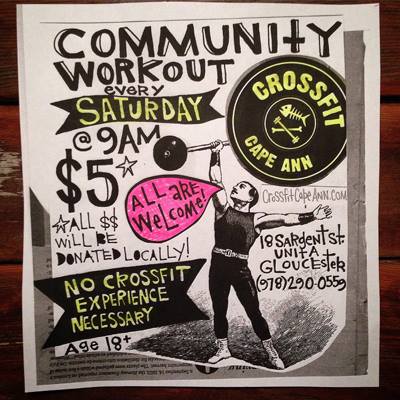 COMMUNITY
WORKOUT
every
SATURDAY
@ 9AM
$5☆
☆ALL $$
WILL BE
DONATED LOCALLY!
NO CROSSFIT
EXPERIENCE
NECESSARY
Age 18+
ALL ARE
WeLCome!
CROSSFIT
CAPE ANN
CROSSFITCAPEANN.COM
18 SARGENT ST.
UNIT A
GLOUCESTER
(978)290-0559